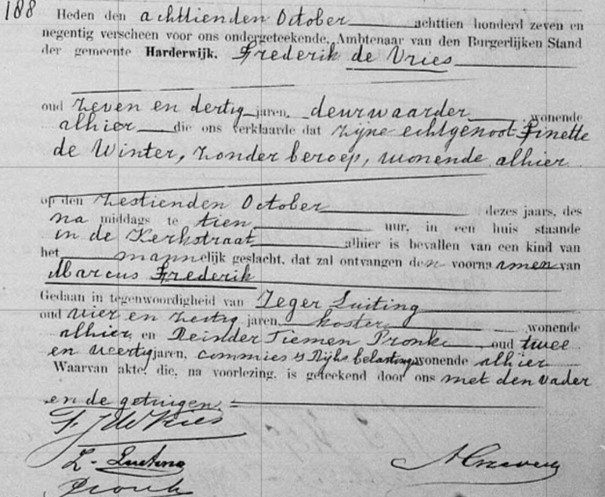 188
Heden den achttienden October achttien honderd zeven en
negentig verscheen voor ons ondergeteekende, Ambtenaar van den Burgerlijken Stand
der gemeente Harderwijk, Frederik de Vries
oud zeven en dertig jaren, deurwaarder wonende
alhier die ons verklaarde dat zijne echtgenoot Finette
de Winter, zonder beroep, wonende alhier
op den zestienden October dezes jaars, des
na middags te tien uur, in een huis staande
in de Kerkstraat alhier is bevallen van een kind van
het mannelijk geslacht, dat zal ontvangen den voornamen van
Marcus Frederik
Gedaan in tegenwoordigheid van Zeger Luiting
oud vier en zestig jaren, koster wonende
alhier, en Reinder Tiemen Pronk oud twee
en veertig jaren, commies 's Rijks belasting wonende alhier
Waarvan akte, die, na voorlezing, is geteekend door ons met den vader
en de getuigen.
F de Vries
Z. Luiting
Pronk